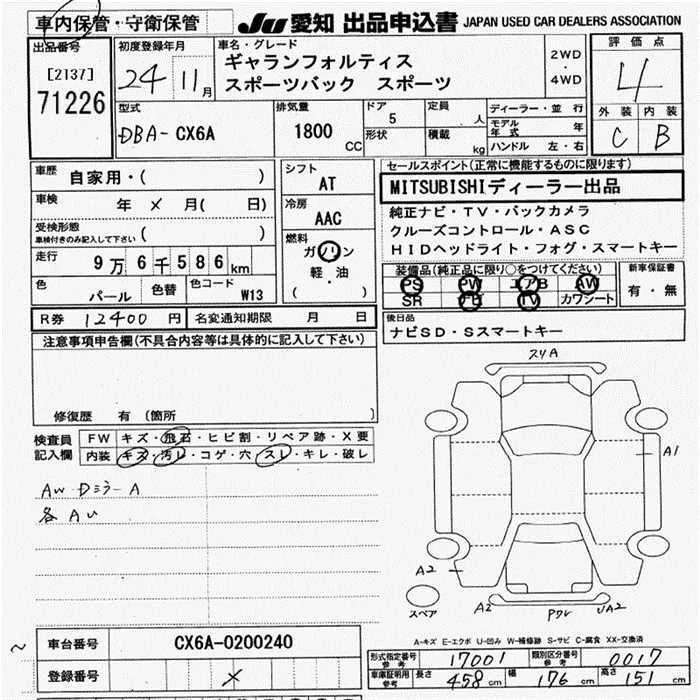 車内保管・守衛保管
JU 愛知 出品申込書 JAPAN USED CAR DEALERS ASSOCIATION
出品番号
[2137]
71226
初度登録年月
24 11月
車名・グレード
ギャランフォルティス
スポーツバック スポーツ
2WD
・
4WD
評価点
4
外装 内装
C B
型式
DBA-CX6A
排気量
1800
CC
ドア
5
形状
定員
人
積載
kg
ディーラー・並行
モデル年式 年
ハンドル 左・右
車歴
自家用・( )
車検 年 × 月( 日)
受検形態
車検付きのみ記入して下さい ( )
走行 9万6千586km
色 パール
色替
色コード W13
シフト
AT
冷房
AAC
燃料
ガソリン
軽・油
( )
セールスポイント(正常に機能するものに限ります)
MITSUBISHIディーラー出品
純正ナビ・TV・バックカメラ
クルーズコントロール・ASC
HIDヘッドライト・フォグ・スマートキー
装備品(純正品に限り○をつけてください)
PS PW エアB AW
SR ナビ TV カワシート
新車保証書
有・無
後日品
ナビSD・Sスマートキー
R券 12400円 名変通知期限 月 日
注意事項申告欄(不具合内容等は具体的に記入して下さい)
修復歴 有 〔箇所 〕
検査員
記入欄
FW キズ・飛石・ヒビ割・リペア跡・X要
内装 キズ・汚レ・コゲ・穴・スレ・キレ・破レ
AW Dミラー A
各 AU
スリA
A1
A2
スペア
A2
Pワレ
UA2
A-キズ E-エクボ U-凹み W-補修跡 S-サビ C-腐食 XX-交換済
〜
車台番号 CX6A-0200240
登録番号 ×
形式指定番号
参考
17001
類別区分番号
参考
0017
車庫証明用
参考
長さ 458cm 幅 176cm 高さ 151cm